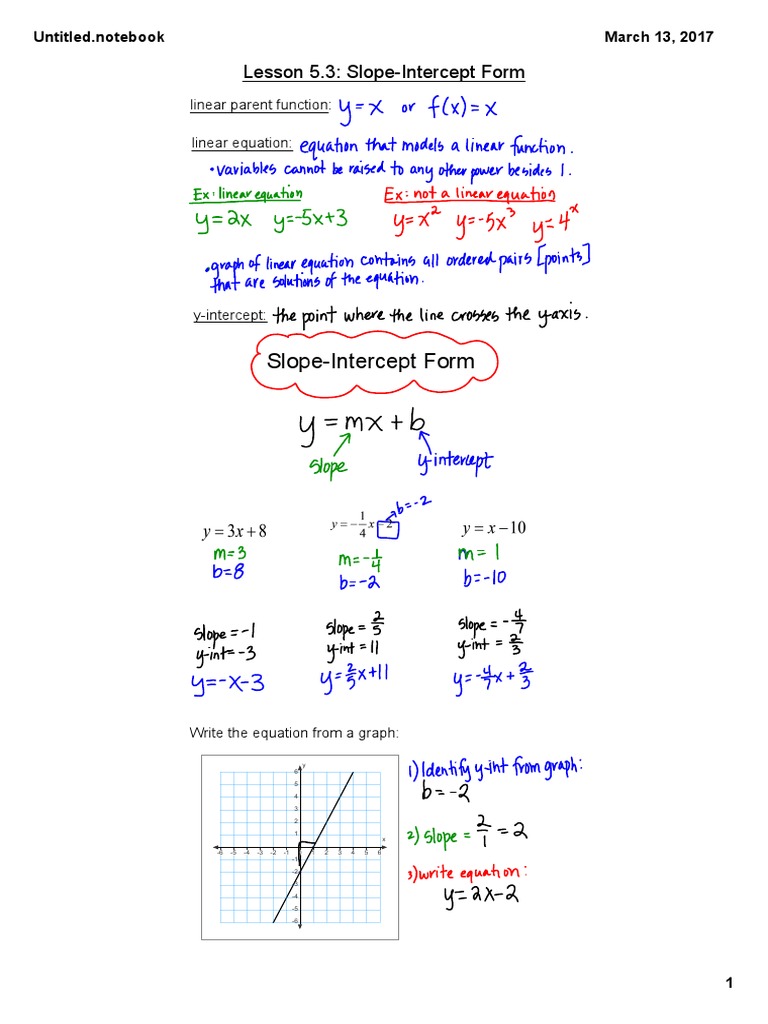 Untitled.notebook March 13, 2017
Lesson 5.3: Slope-Intercept Form
linear parent function: y = x or f(x) = x
linear equation: equation that models a linear function.
• variables cannot be raised to any other power besides 1.
Ex: linear equation Ex: not a linear equation
y = 2x y = -5x + 3 y = x² y = -5x³ y = 4ˣ
• graph of linear equation contains all ordered pairs [points]
that are solutions of the equation.
y-intercept: the point where the line crosses the y-axis.
Slope-Intercept Form
y = mx + b
slope y-intercept
b = -2
y = 3x + 8 y = -1/4 x - 2 y = x - 10
m = 3 m = -1/4 m = 1
b = 8 b = -2 b = -10
slope = -1 slope = 2/5 slope = -4/7
y-int = -3 y-int = 11 y-int = 2/3
y = -x - 3 y = 2/5 x + 11 y = -4/7 x + 2/3
Write the equation from a graph:
1) Identify y-int from graph:
b = -2
2) slope = 2/1 = 2
3) write equation:
y = 2x - 2
y
6
5
4
3
2
1
x
-6 -5 -4 -3 -2 -1 1 2 3 4 5 6
-1
-2
-3
-4
-5
-6
1